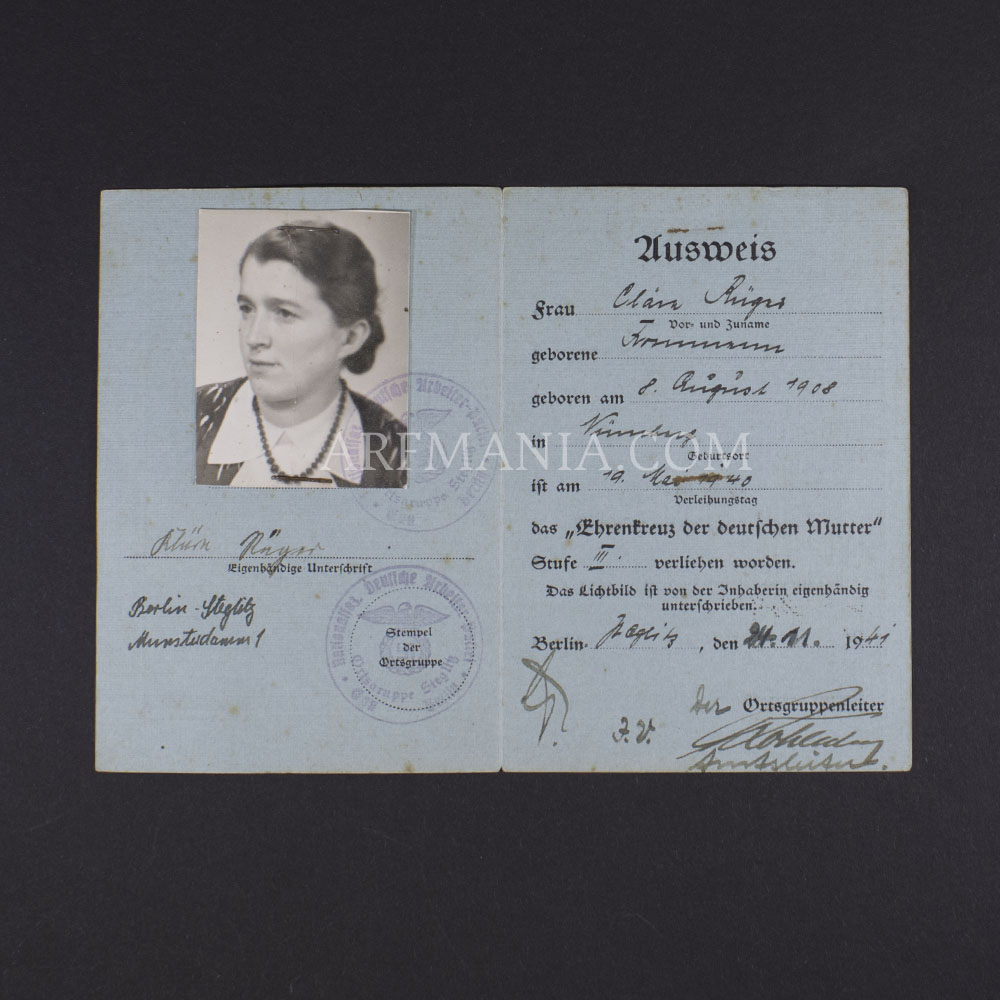 Kläre Rüger
Eigenhändige Unterschrift
Berlin-Steglitz
Munsterdamm 1
Nationalsoz. Deutsche Arbeiter-Partei
Ortsgruppe Steglitz
Gau Berlin
Stempel
der
Ortsgruppe
Ausweis
Frau Kläre Rüger
Vor- und Zuname
geborene
geboren am 8. August 1908
in Nürnberg
Geburtsort
ist am 19. Mai 1940
Verleihungstag
das „Ehrenkreuz der deutschen Mutter“
Stufe III. verliehen worden.
Das Lichtbild ist von der Inhaberin eigenhändig
unterschrieben.
Berlin-Steglitz, den 24. 11. 1941
Der Ortsgruppenleiter
I.V.
Amtsleiter.
ARFMANIA.COM